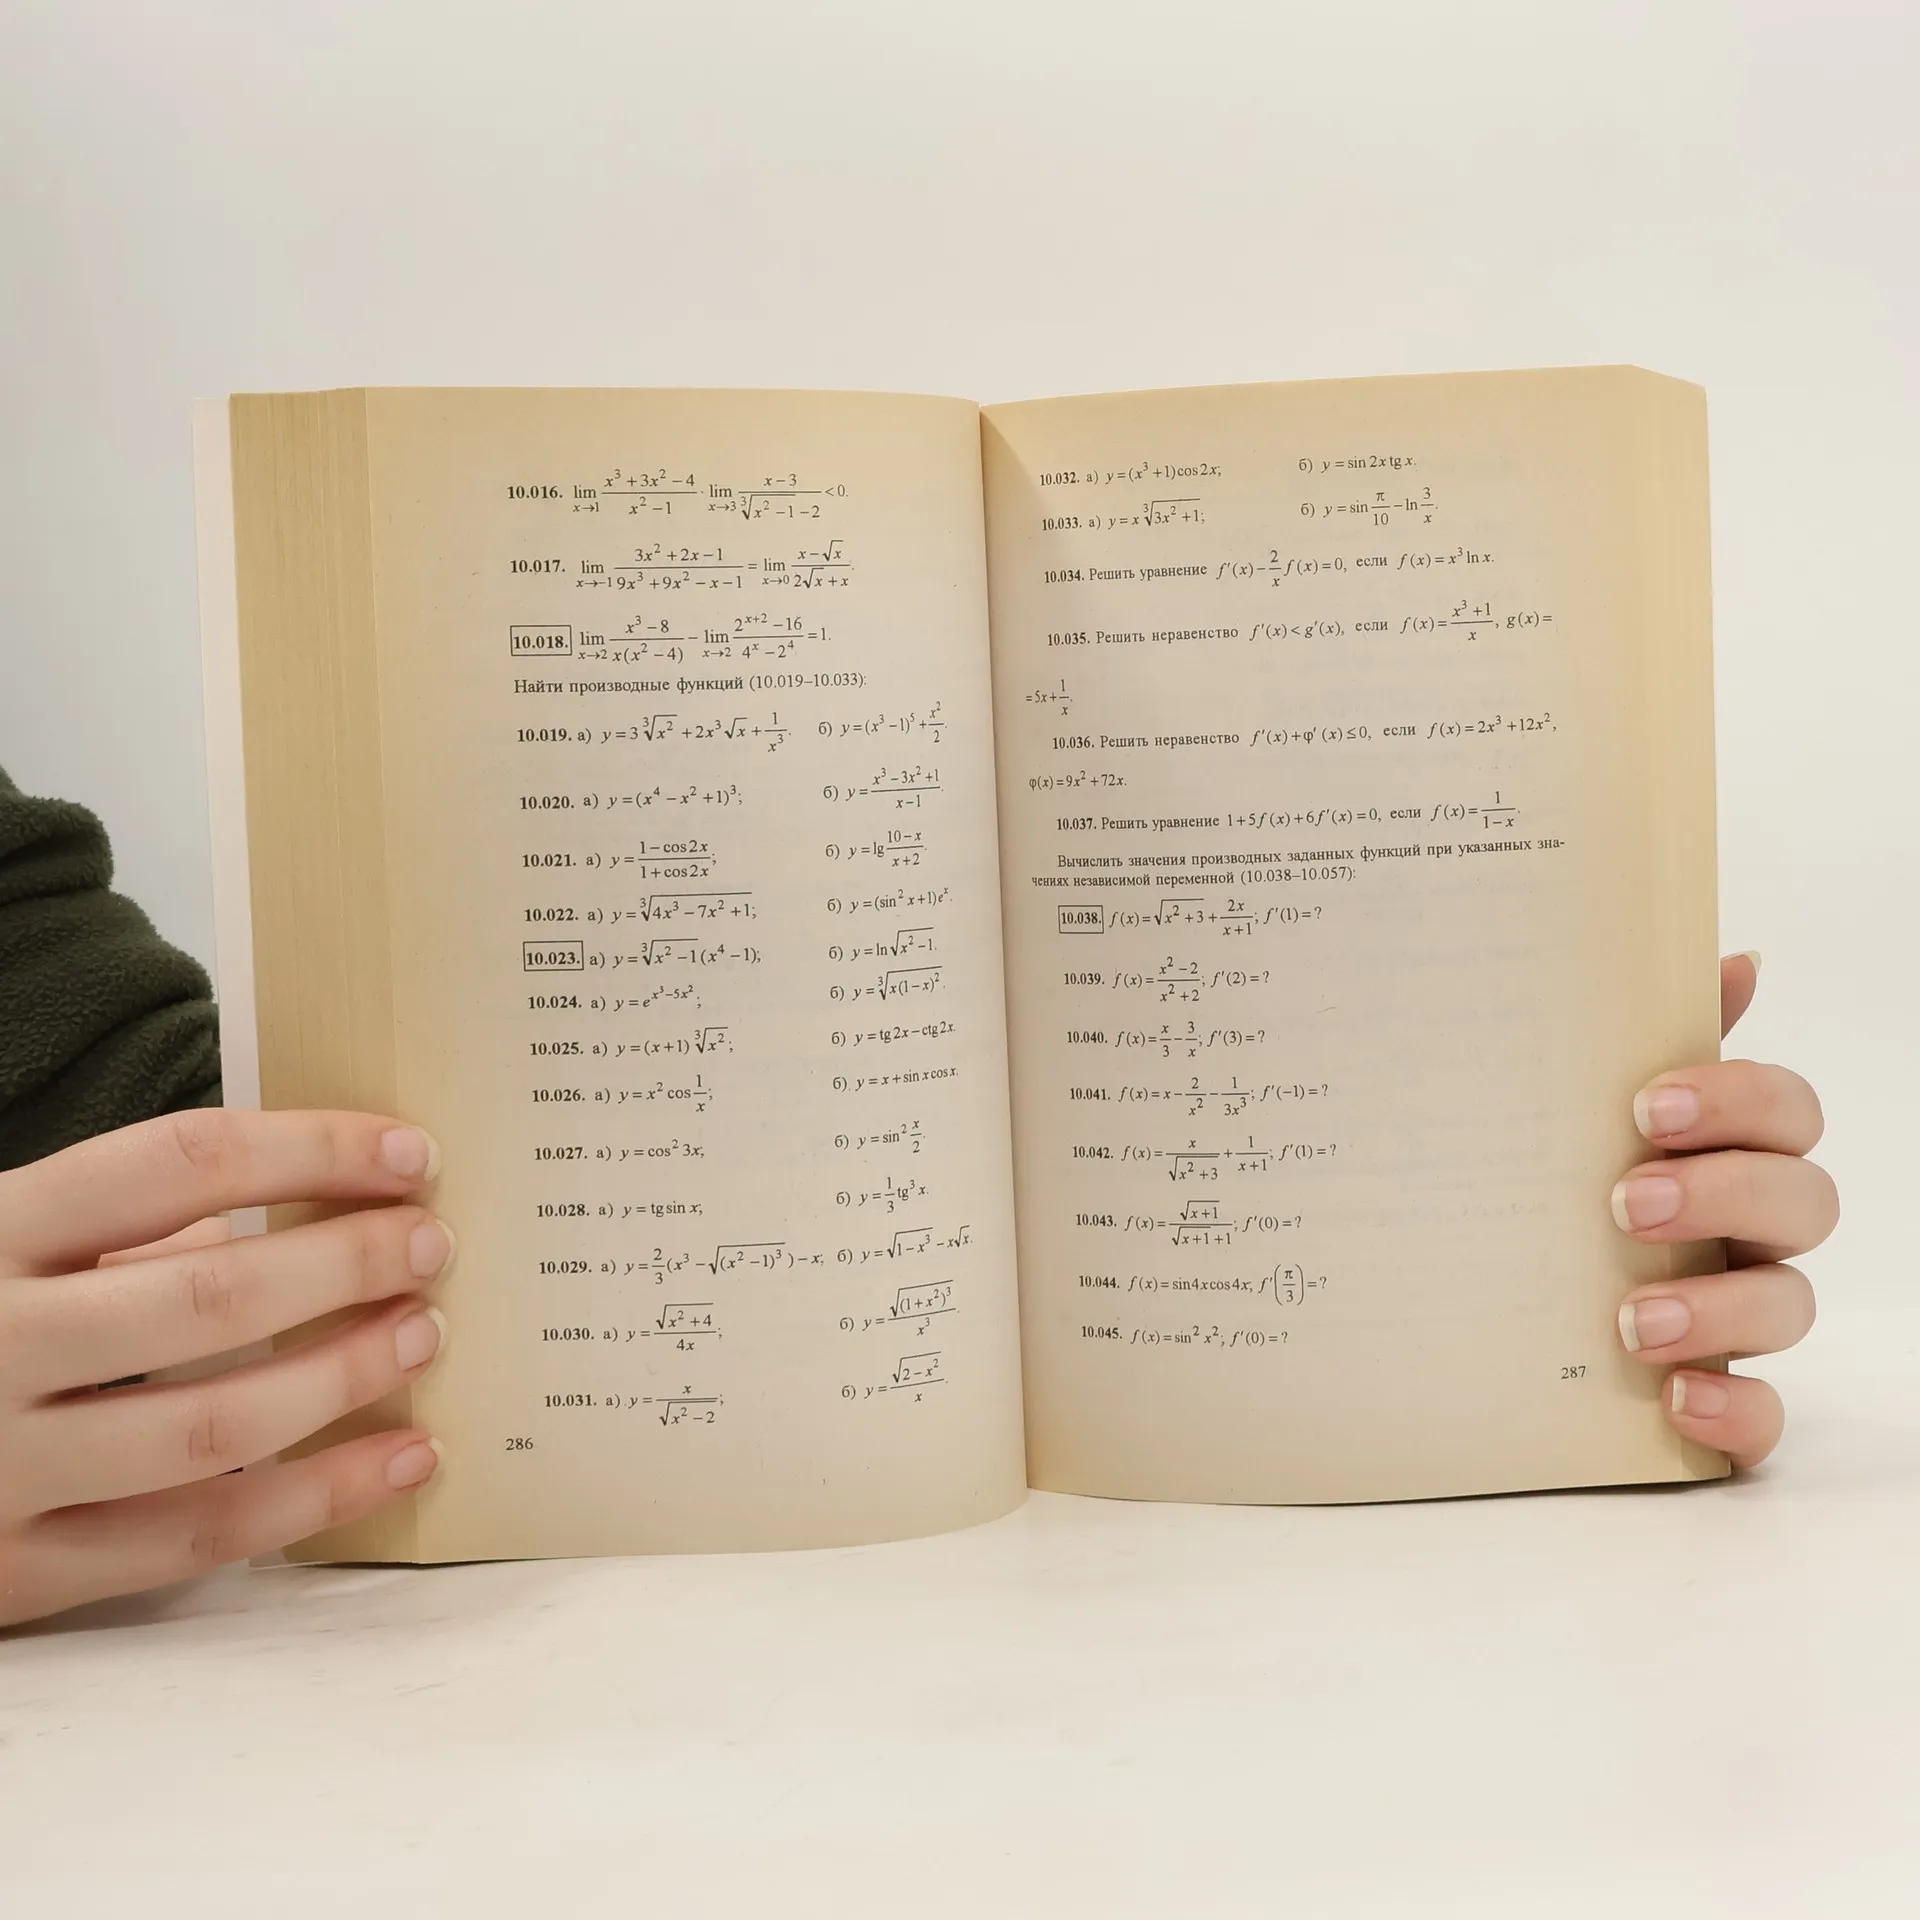 10.016. lim_{x→1} (x³+3x²−4)/(x²−1) · lim_{x→3} (x−3)/(∛(x²−1)−2) <0.
10.017. lim_{x→−1} (3x²+2x−1)/(9x³+9x²−x−1) = lim_{x→0} (x−√x)/(2√x+x).
10.018. lim_{x→2} (x³−8)/(x(x²−4)) − lim_{x→2} (2^{x+2}−16)/(4^x−2⁴) =1.
Найти производные функций (10.019–10.033):
10.019. а) y=3∛(x²)+2x³√x+1/x³. б) y=(x³−1)⁵+x²/2.
10.020. а) y=(x⁴−x²+1)³; б) y=(x³−3x²+1)/(x−1).
10.021. а) y=(1−cos2x)/(1+cos2x); б) y=lg (10−x)/(x+2).
10.022. а) y=∛(4x³−7x²+1); б) y=(sin²x+1)e^x.
10.023. а) y=∛(x²−1)(x⁴−1); б) y=ln√(x²−1).
10.024. а) y=e^{x³−5x²}; б) y=∛(x(1−x)²).
10.025. а) y=(x+1)∛(x²); б) y=tg2x−ctg2x.
10.026. а) y=x²cos 1/x; б) y=x+sinxcosx.
10.027. а) y=cos²3x; б) y=sin² x/2.
10.028. а) y=tgsinx; б) y=1/3 tg³x.
10.029. а) y=2/3(x³−√((x²−1)³))−x; б) y=√(1−x³)−x√x.
10.030. а) y=√(x²+4)/(4x); б) y=√((1+x²)³)/x³.
10.031. а) y=x/√(x²−2); б) y=√(2−x²)/x.
286
10.032. а) y=(x³+1)cos2x; б) y=sin2xtgx.
10.033. а) y=x∛(3x²+1); б) y=sin π/10 −ln 3/x.
10.034. Решить уравнение f′(x)−2/x f(x)=0, если f(x)=x³lnx.
10.035. Решить неравенство f′(x)<g′(x), если f(x)=(x³+1)/x, g(x)=
=5x+1/x.
10.036. Решить неравенство f′(x)+φ′(x)≤0, если f(x)=2x³+12x²,
φ(x)=9x²+72x.
10.037. Решить уравнение 1+5f(x)+6f′(x)=0, если f(x)=1/(1−x).
Вычислить значения производных заданных функций при указанных зна-
чениях независимой переменной (10.038–10.057):
10.038. f(x)=√(x²+3)+2x/(x+1); f′(1)=?
10.039. f(x)=(x²−2)/(x²+2); f′(2)=?
10.040. f(x)=x/3−3/x; f′(3)=?
10.041. f(x)=x−2/x²−1/(3x³); f′(−1)=?
10.042. f(x)=x/√(x²+3)+1/(x+1); f′(1)=?
10.043. f(x)=√(x+1)/(√(x+1)+1); f′(0)=?
10.044. f(x)=sin4xcos4x; f′(π/3)=?
10.045. f(x)=sin²x²; f′(0)=?
287